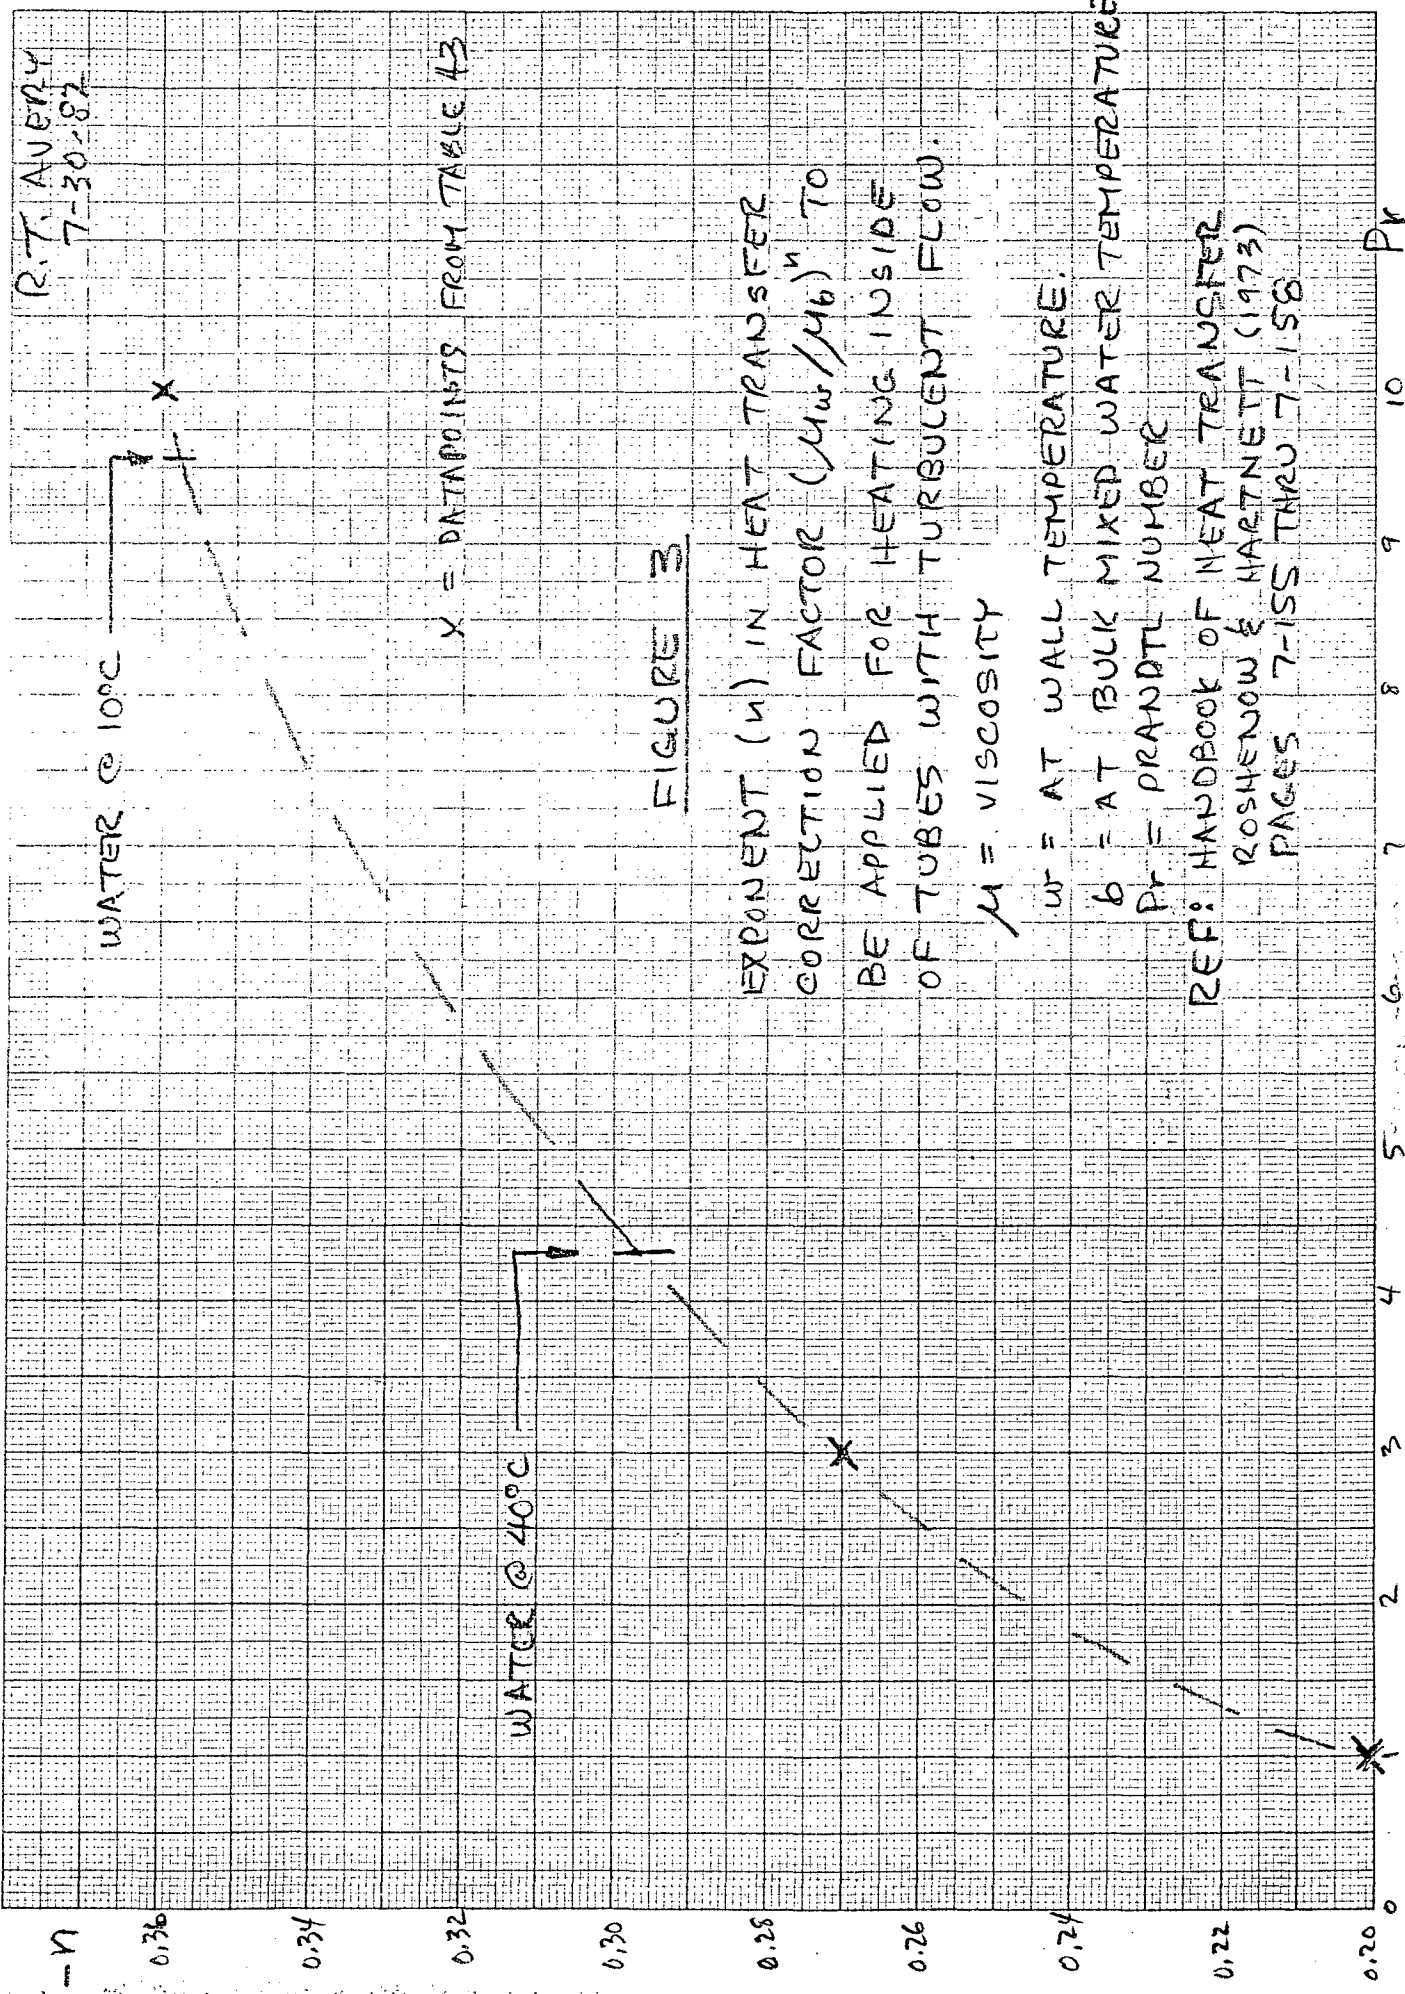 R.T. AVERY
7-30-82
-n
WATER @ 10°C
X = DATAPOINTS FROM TABLE 43
WATER @ 40°C
FIGURE 3
EXPONENT (n) IN HEAT TRANSFER
CORRECTION FACTOR (μw/μb)ⁿ TO
BE APPLIED FOR HEATING INSIDE
OF TUBES WITH TURBULENT FLOW.
μ = VISCOSITY
w = AT WALL TEMPERATURE.
b = AT BULK MIXED WATER TEMPERATURE
Pr = PRANDTL NUMBER
REF: HANDBOOK OF HEAT TRANSFER
ROSHENOW & HARTNETT (1973)
PAGES 7-155 THRU 7-158
0.36
0.34
0.32
0.30
0.28
0.26
0.24
0.22
0.20
0 1 2 3 4 5 6 7 8 9 10 Pr